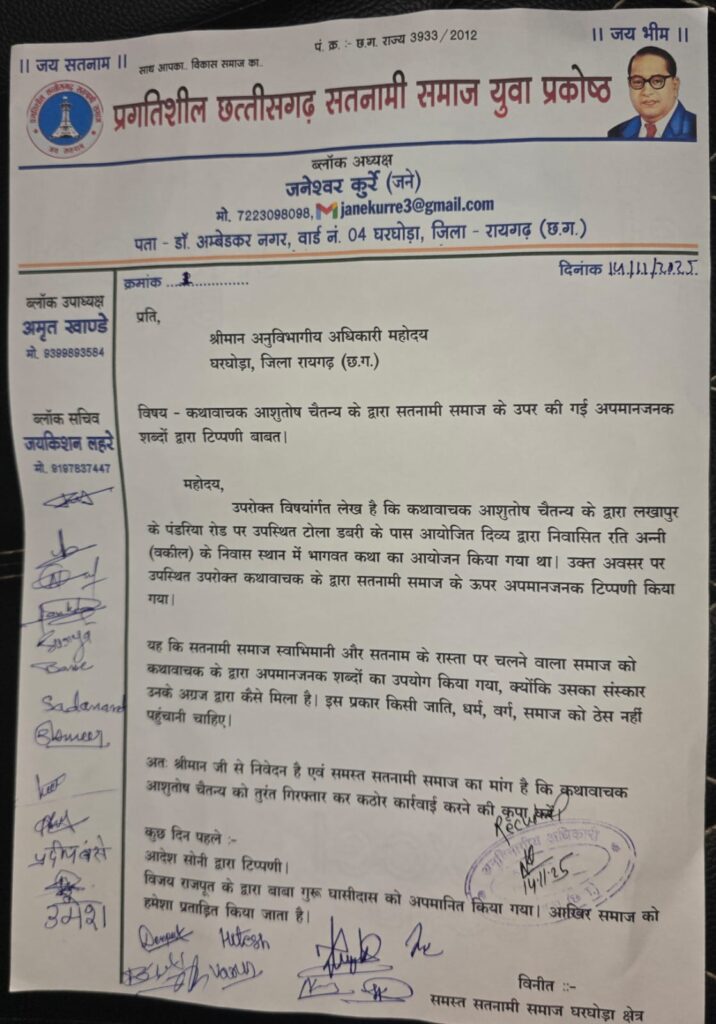 पं. क्र. :- छ.ग. राज्य 3933/2012
|| जय सतनाम ||
साथ आपका.. विकास समाज का..
|| जय भीम ||
प्रगतिशील छत्तीसगढ़ सतनामी समाज युवा प्रकोष्ठ
ब्लॉक अध्यक्ष
जनेश्वर कुर्रे (जने)
मो. 7223098098, janekurre3@gmail.com
पता - डॉ. अम्बेडकर नगर, वार्ड नं. 04 घरघोड़ा, जिला - रायगढ़ (छ.ग.)
क्रमांक ...1..............
दिनांक 14/11/2025.
ब्लॉक उपाध्यक्ष
अमृत खाण्डे
मो. 9399893584
ब्लॉक सचिव
जयकिशन लहरे
मो. 9197837447
प्रति,
श्रीमान अनुविभागीय अधिकारी महोदय
घरघोड़ा, जिला रायगढ़ (छ.ग.)
विषय - कथावाचक आशुतोष चैतन्य के द्वारा सतनामी समाज के उपर की गई अपमानजनक
शब्दों द्वारा टिप्पणी बाबत।
महोदय,
उपरोक्त विषयांर्गत लेख है कि कथावाचक आशुतोष चैतन्य के द्वारा लखापुर
के पंडरिया रोड पर उपस्थित टोला डबरी के पास आयोजित दिव्य द्वारा निवासित रति अन्नी
(वकील) के निवास स्थान में भागवत कथा का आयोजन किया गया था। उक्त अवसर पर
उपस्थित उपरोक्त कथावाचक के द्वारा सतनामी समाज के ऊपर अपमानजनक टिप्पणी किया
गया।
यह कि सतनामी समाज स्वाभिमानी और सतनाम के रास्ता पर चलने वाला समाज को
कथावाचक के द्वारा अपमानजनक शब्दों का उपयोग किया गया, क्योंकि उसका संस्कार
उनके अग्रज द्वारा कैसे मिला है। इस प्रकार किसी जाति, धर्म, वर्ग, समाज को ठेस नहीं
पहुंचानी चाहिए।
अतः श्रीमान जी से निवेदन है एवं समस्त सतनामी समाज का मांग है कि कथावाचक
आशुतोष चैतन्य को तुरंत गिरफ्तार कर कठोर कार्रवाई करने की कृपा करें
Recived
अनुविभागीय अधिकारी
14.11.25
कुछ दिन पहले :-
आदेश सोनी द्वारा टिप्पणी।
विजय राजपूत के द्वारा बाबा गुरू घासीदास को अपमानित किया गया। आखिर समाज को
हमेशा प्रताड़ित किया जाता है।
Sadanand
उमेश
Deepak Hitesh
विनीत :-
समस्त सतनामी समाज घरघोड़ा क्षेत्र